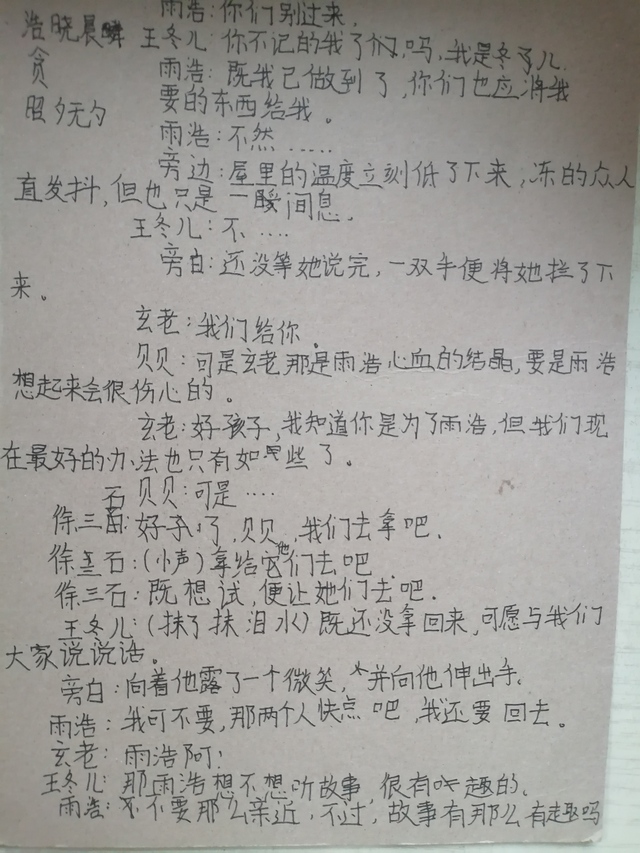 雨浩:你们别过来,
浩晓晨
贪
王冬儿:你不记的我了们,吗,我是冬了儿.
雨浩:既我已做到了,你们也应将我
要的东西给我。
雨浩:不然.....
旁边:屋里的温度立刻低了下来,冻的众人
直发抖,但也只是一瞬间息.
王冬儿:不....
旁白:还没等她说完,一双手便将她拦了下
来。
玄老:我们给你.
贝贝:可是玄老,那是雨浩心血的结晶,要是雨浩
想起来会很伤心的。
玄老:好孩子,我知道你是为了雨浩,但我们现
在最好的办法也只有如些了。
贝贝:可是....
徐三石:好了,贝贝,我们去拿吧.
徐三石:(小声)拿给他们去吧.
徐三石:既想试,便让她们去吧.
王冬儿:(抹了抹泪水)既还没拿回来,可愿与我们
大家说说话。
旁白:向着他露了一个微笑,并向他伸出手.
雨浩:我可不要,那两个人快点吧,我还要回去。
玄老:雨浩阿!
王冬儿:那雨浩想不想听故事,很有趣的.
雨浩:不要那么亲近,不过,故事有那么有趣吗